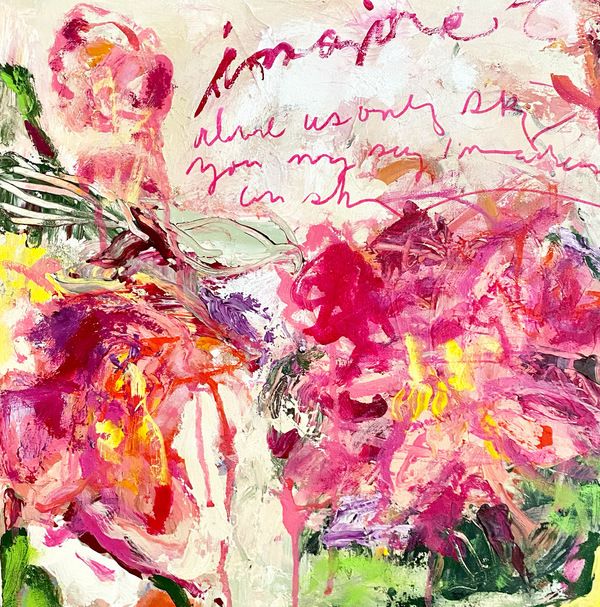 imagine
above us only sky
you may say I'm a dream